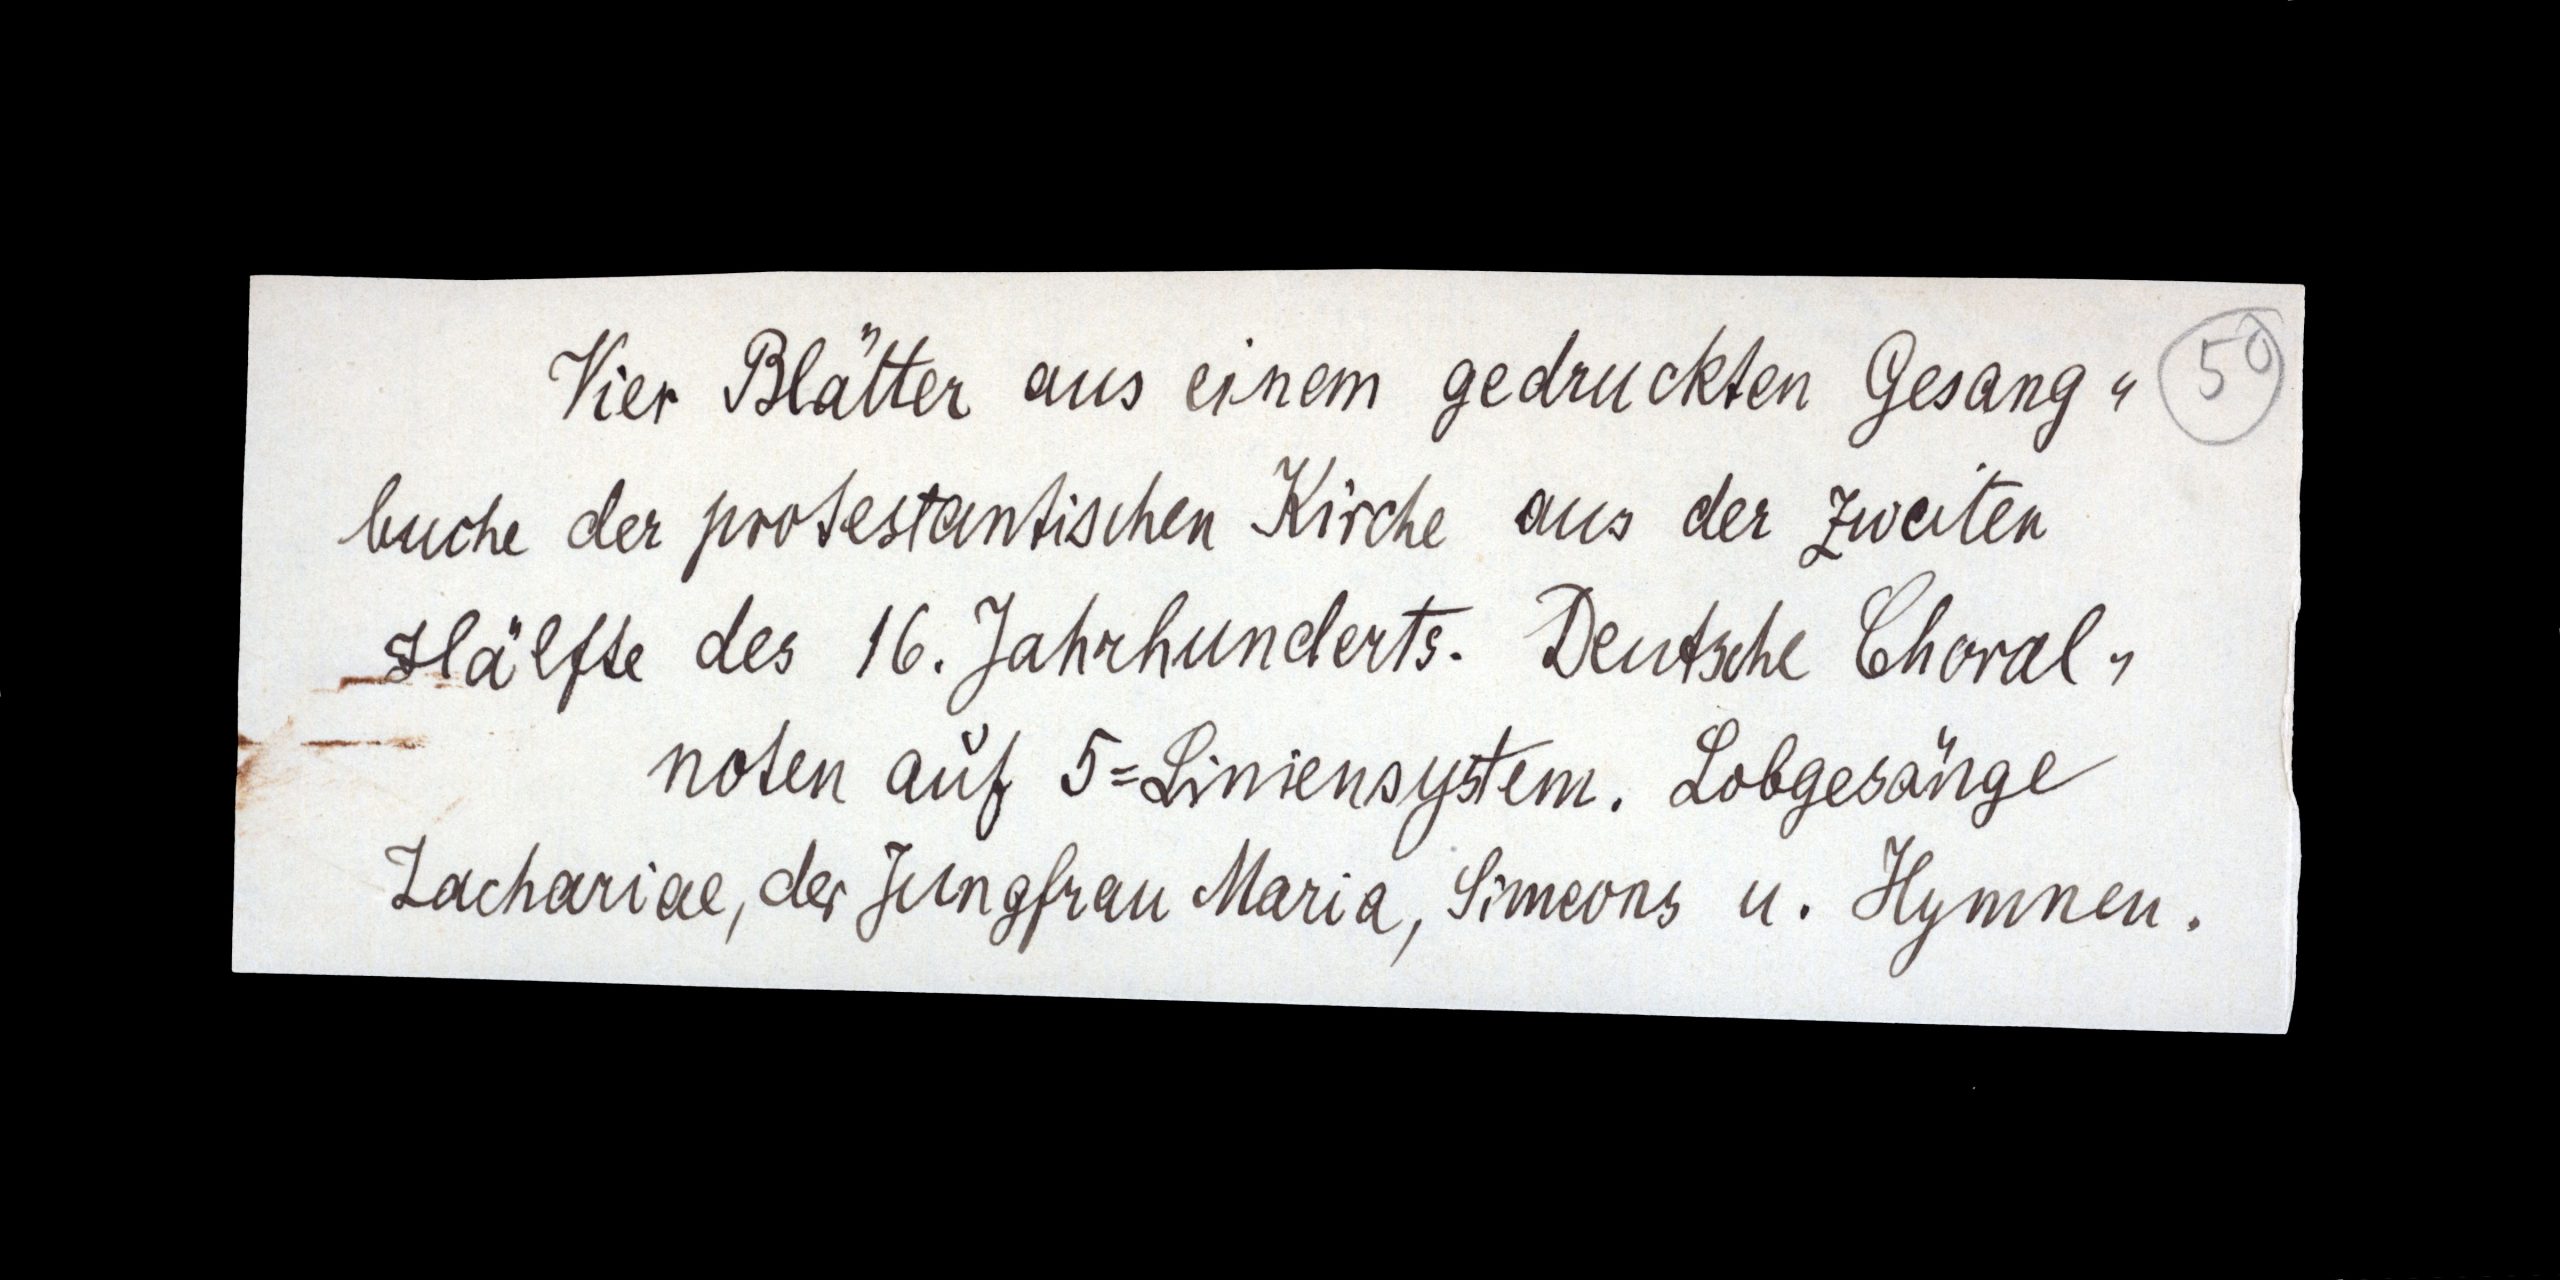 Vier Blätter aus einem gedruckten Gesang„ 50
buche der protestantischen Kirche aus der zweiten
Hälfte des 16. Jahrhunderts. Deutsche Choral„
noten auf 5=Liniensystem. Lobgesänge
Zachariae, der Jungfrau Maria, Simeons u. Hymnen.